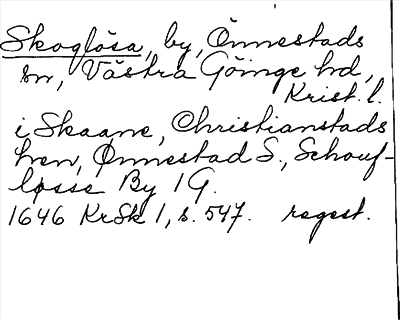 Skoglösa, by, Önnestads
sn, Västra Göinge hd,
Krist. l.
i Skaane, Christianstads
Len, Ønnestad S., Schouf-
løsse By 1 G.
1646 KrSk 1, s. 547. regest.